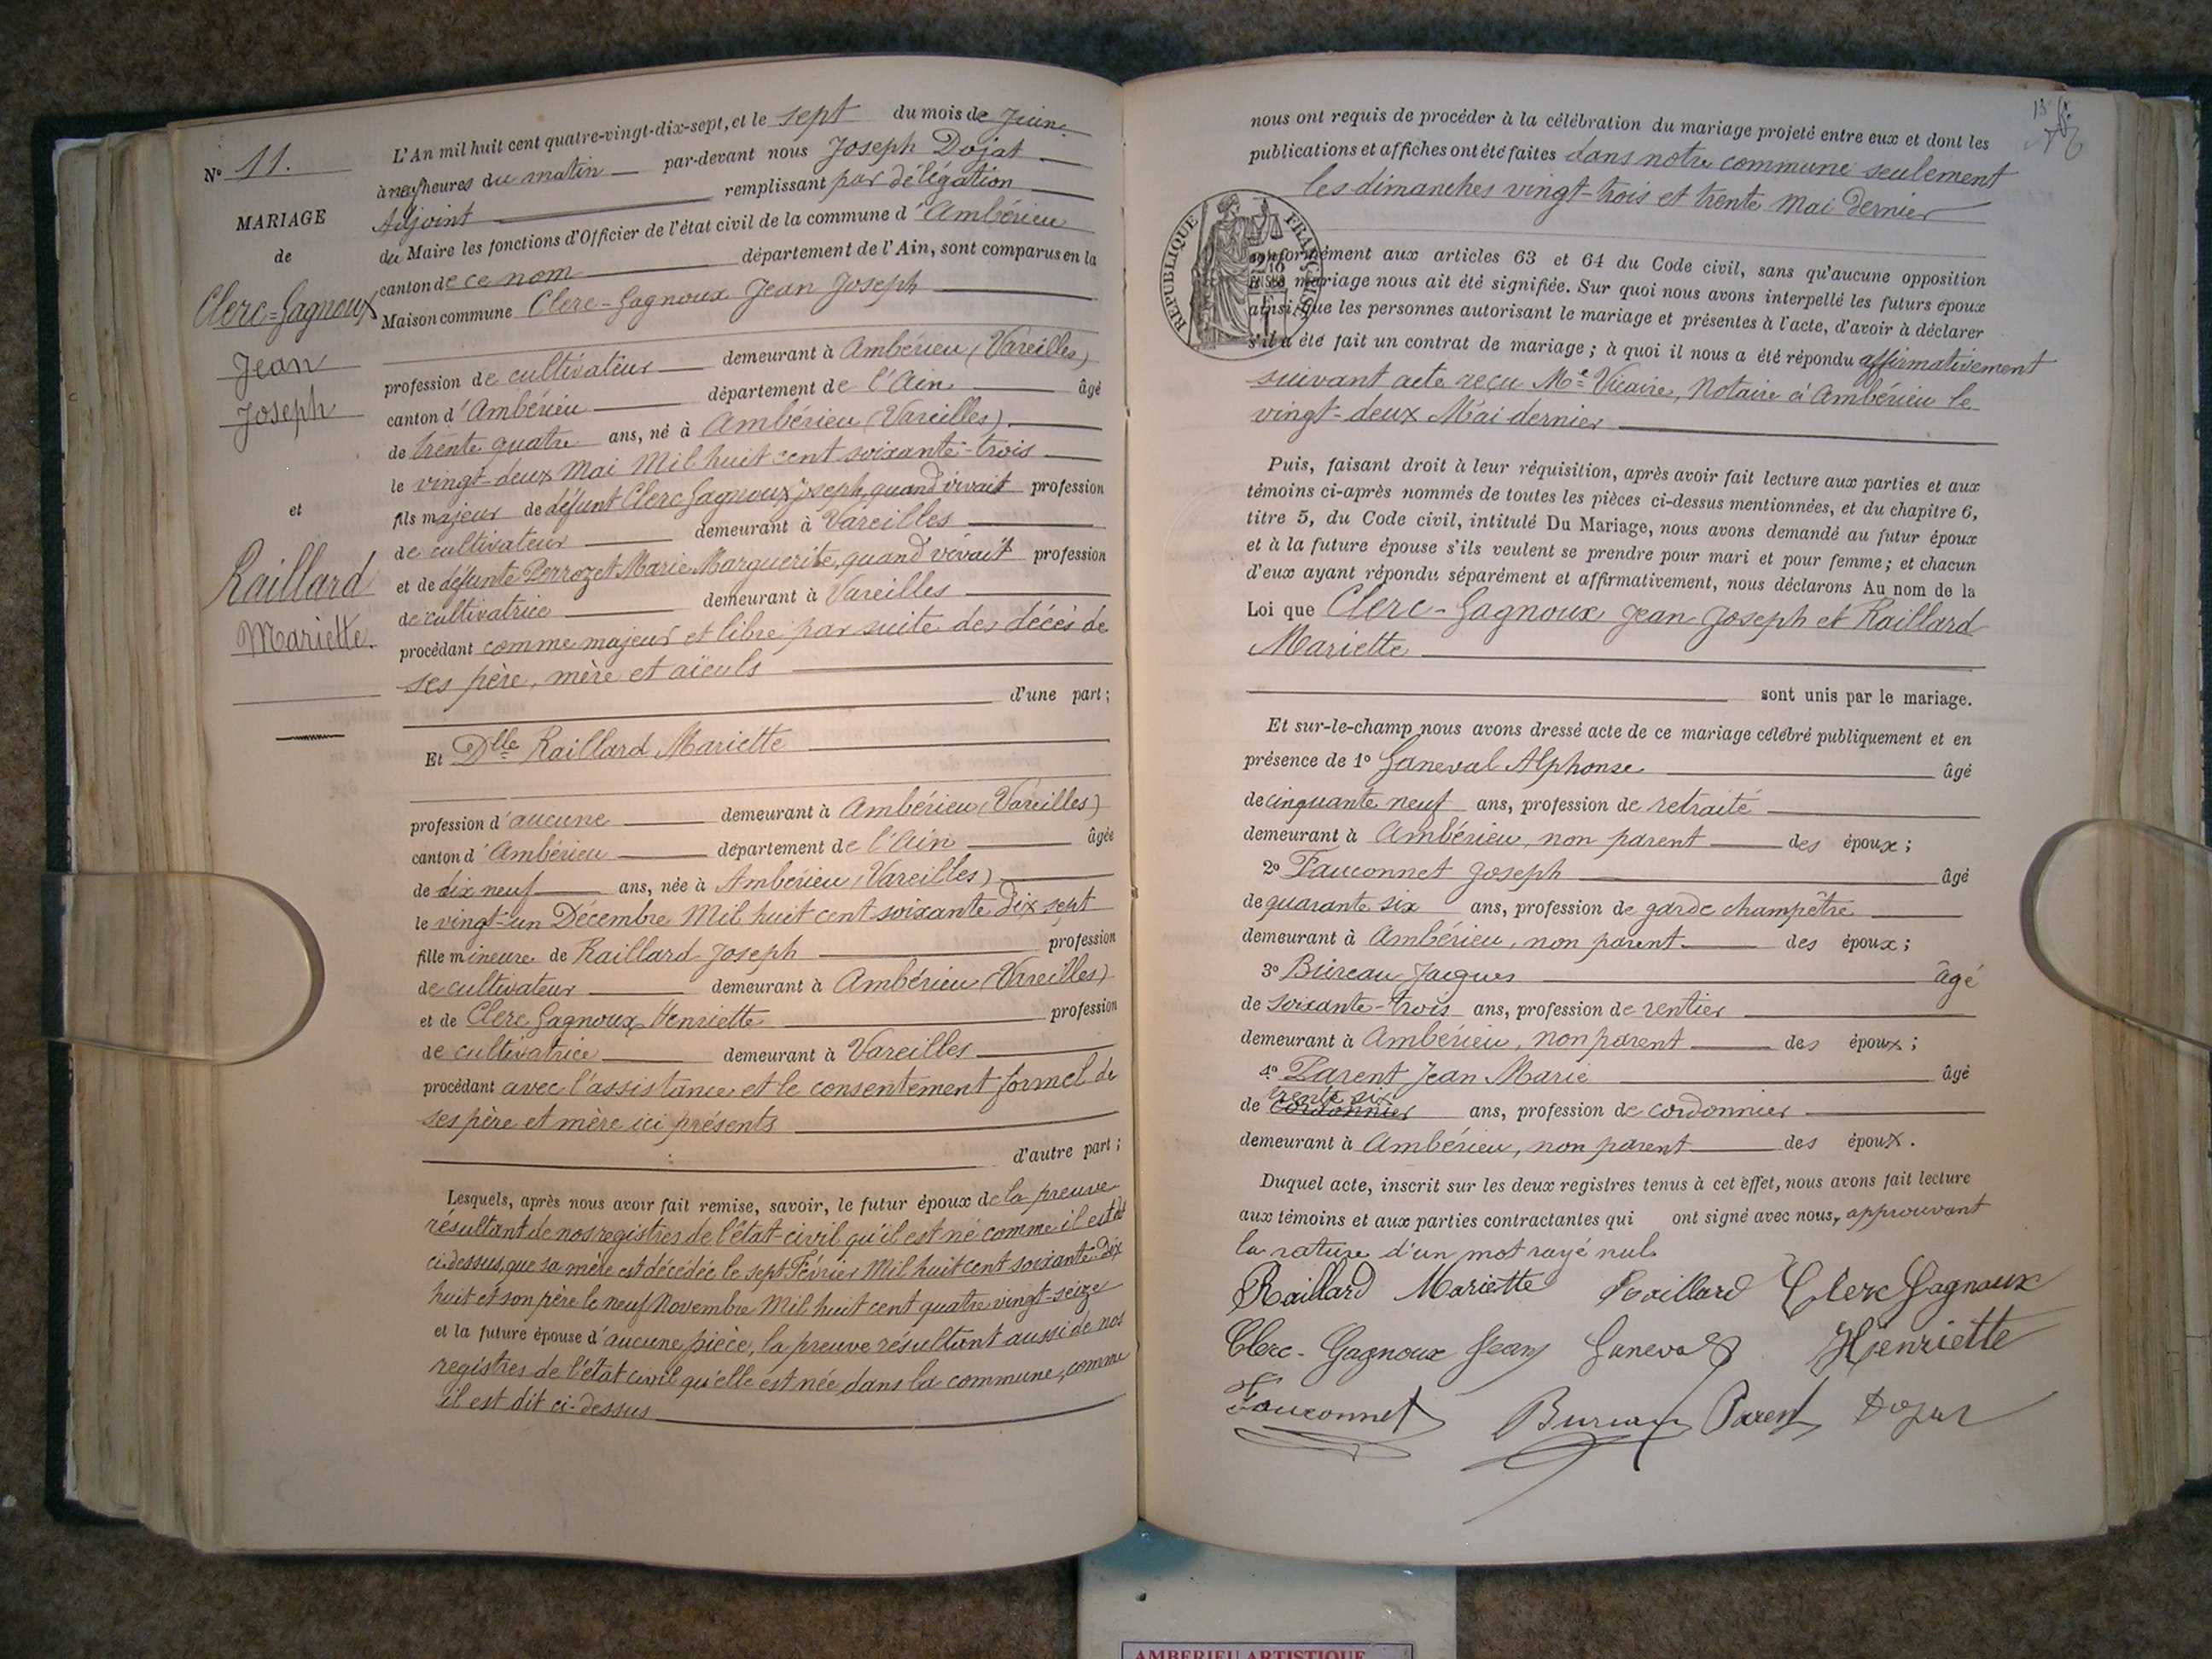 N° 11.
MARIAGE
de
Clerc=Gagnoux
Jean
Joseph
et
Raillard
Mariette.
L'An mil huit cent quatre-vingt-dix-sept, et le sept du mois de Juin
à neuf heures du matin par-devant nous Joseph Dojat
Adjoint remplissant par délégation
du Maire les fonctions d'Officier de l'état civil de la commune d'Ambérieu
canton de ce nom département de l'Ain, sont comparus en la
Maison commune Clerc-Gagnoux Jean Joseph
profession de cultivateur demeurant à Ambérieu (Vareilles)
canton d'Ambérieu département de l'Ain âgé
de trente quatre ans, né à Ambérieu (Vareilles)
le vingt-deux Mai Mil huit cent soixante-trois
fils majeur de défunt Clerc Gagnoux Joseph, quand vivait profession
de cultivateur demeurant à Vareilles
et de défunte Perrozet Marie Marguerite, quand vivait profession
de cultivatrice demeurant à Vareilles
procédant comme majeur et libre par suite des décès de
ses père, mère et aïeuls
d'une part;
Et Dlle Raillard Mariette
profession d'aucune demeurant à Ambérieu (Vareilles)
canton d'Ambérieu département de l'Ain âgée
de dix neuf ans, née à Ambérieu (Vareilles)
le vingt-un Décembre Mil huit cent soixante dix sept
fille mineure de Raillard Joseph profession
de cultivateur demeurant à Ambérieu (Vareilles)
et de Clerc Gagnoux Henriette profession
de cultivatrice demeurant à Vareilles
procédant avec l'assistance et le consentement formel de
ses père et mère ici présents
d'autre part;
Lesquels, après nous avoir fait remise, savoir, le futur époux de la preuve
résultant de nos registres de l'état-civil qu'il est né comme il est dit
ci-dessus, que sa mère est décédée le sept Février Mil huit cent soixante-dix
huit et son père le neuf Novembre Mil huit cent quatre vingt-seize
et la future épouse d'aucune pièce, la preuve résultant aussi de nos
registres de l'état civil qu'elle est née dans la commune, comme
il est dit ci-dessus
13
nous ont requis de procéder à la célébration du mariage projeté entre eux et dont les
publications et affiches ont été faites dans notre commune seulement
les dimanches vingt-trois et trente Mai dernier
RÉPUBLIQUE FRANÇAISE
conformément aux articles 63 et 64 du Code civil, sans qu'aucune opposition
à ce mariage nous ait été signifiée. Sur quoi nous avons interpellé les futurs époux
ainsi que les personnes autorisant le mariage et présentes à l'acte, d'avoir à déclarer
s'il a été fait un contrat de mariage; à quoi il nous a été répondu affirmativement
suivant acte reçu Me Vicaire, Notaire à Ambérieu le
vingt-deux Mai dernier
Puis, faisant droit à leur réquisition, après avoir fait lecture aux parties et aux
témoins ci-après nommés de toutes les pièces ci-dessus mentionnées, et du chapitre 6,
titre 5, du Code civil, intitulé Du Mariage, nous avons demandé au futur époux
et à la future épouse s'ils veulent se prendre pour mari et pour femme; et chacun
d'eux ayant répondu séparément et affirmativement, nous déclarons Au nom de la
Loi que Clerc-Gagnoux Jean Joseph et Raillard
Mariette
sont unis par le mariage.
Et sur-le-champ nous avons dressé acte de ce mariage célébré publiquement et en
présence de 1° Ganeval Alphonse âgé
de cinquante neuf ans, profession de retraité
demeurant à Ambérieu, non parent des époux;
2° Fauconnet Joseph âgé
de quarante six ans, profession de garde champêtre
demeurant à Ambérieu, non parent des époux;
3° Bureau Jacques âgé
de soixante-trois ans, profession de rentier
demeurant à Ambérieu, non parent des époux;
4° Parent Jean Marie âgé
trente six
de cordonnier ans, profession de cordonnier
demeurant à Ambérieu, non parent des époux.
Duquel acte, inscrit sur les deux registres tenus à cet effet, nous avons fait lecture
aux témoins et aux parties contractantes qui ont signé avec nous, approuvant
la rature d'un mot rayé nul
Raillard Mariette Raillard Clerc Gagnoux
Clerc-Gagnoux Jean Ganeval Henriette
Fauconnet Bureau Parent Dojat
AMBERIEU ARTISTIQUE